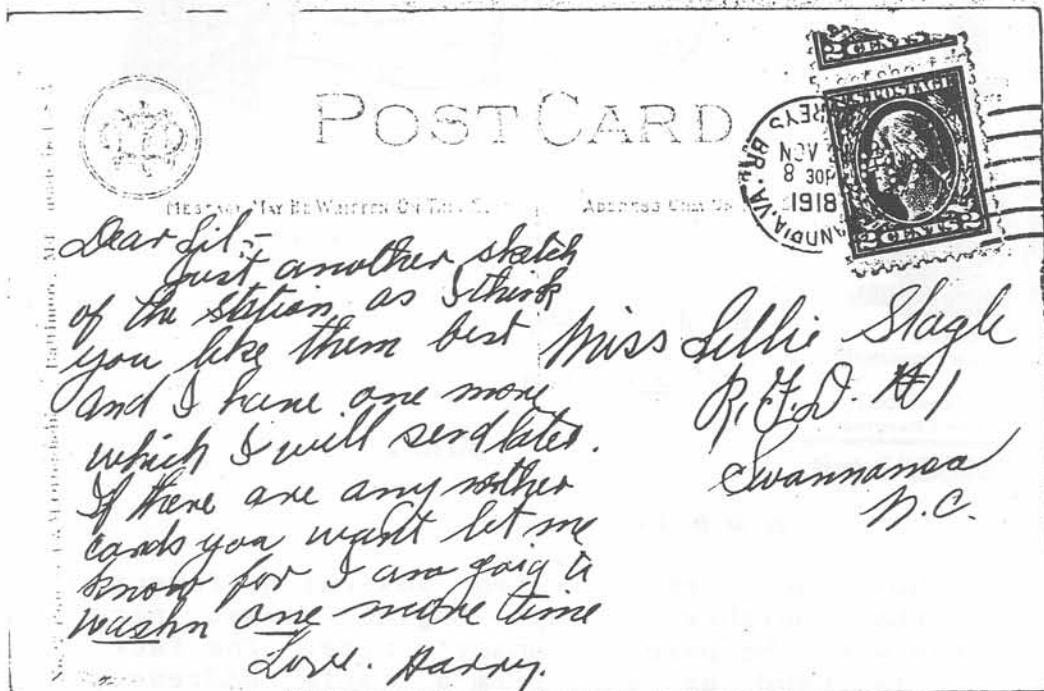 POST CARD
MESSAGE MAY BE WRITTEN ON THIS
ADDRESS
2 CENTS
U.S. POSTAGE
2 CENTS
NOV
8 30P
1918
ANDRIA, VA. BR.
Dear Lil:-
Just another sketch
of the station as I think
you like them best
and I have one more
which I will send later.
If there are any other
cards you want let me
know for I am goig to
washn one more time
Love. Harry.
Miss Lillie Slagle
R.F.D. #1
Swannanoa
N.C.